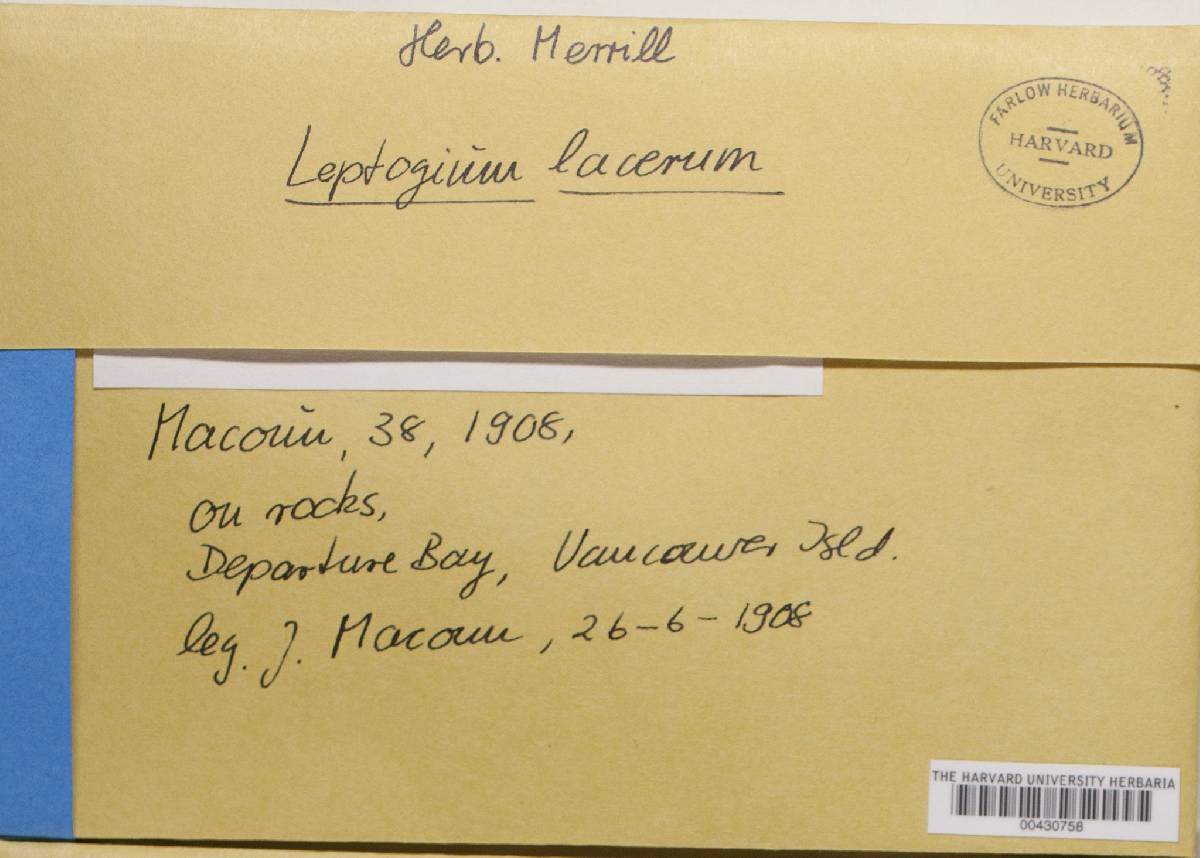 Herb. Merrill
FARLOW HERBARIUM
HARVARD
UNIVERSITY
Leptogium lacerum
Macoun, 38, 1908,
on rocks,
Departure Bay, Vancouver Isld.
leg. J. Macoun, 26-6-1908
THE HARVARD UNIVERSITY HERBARIA
00430758